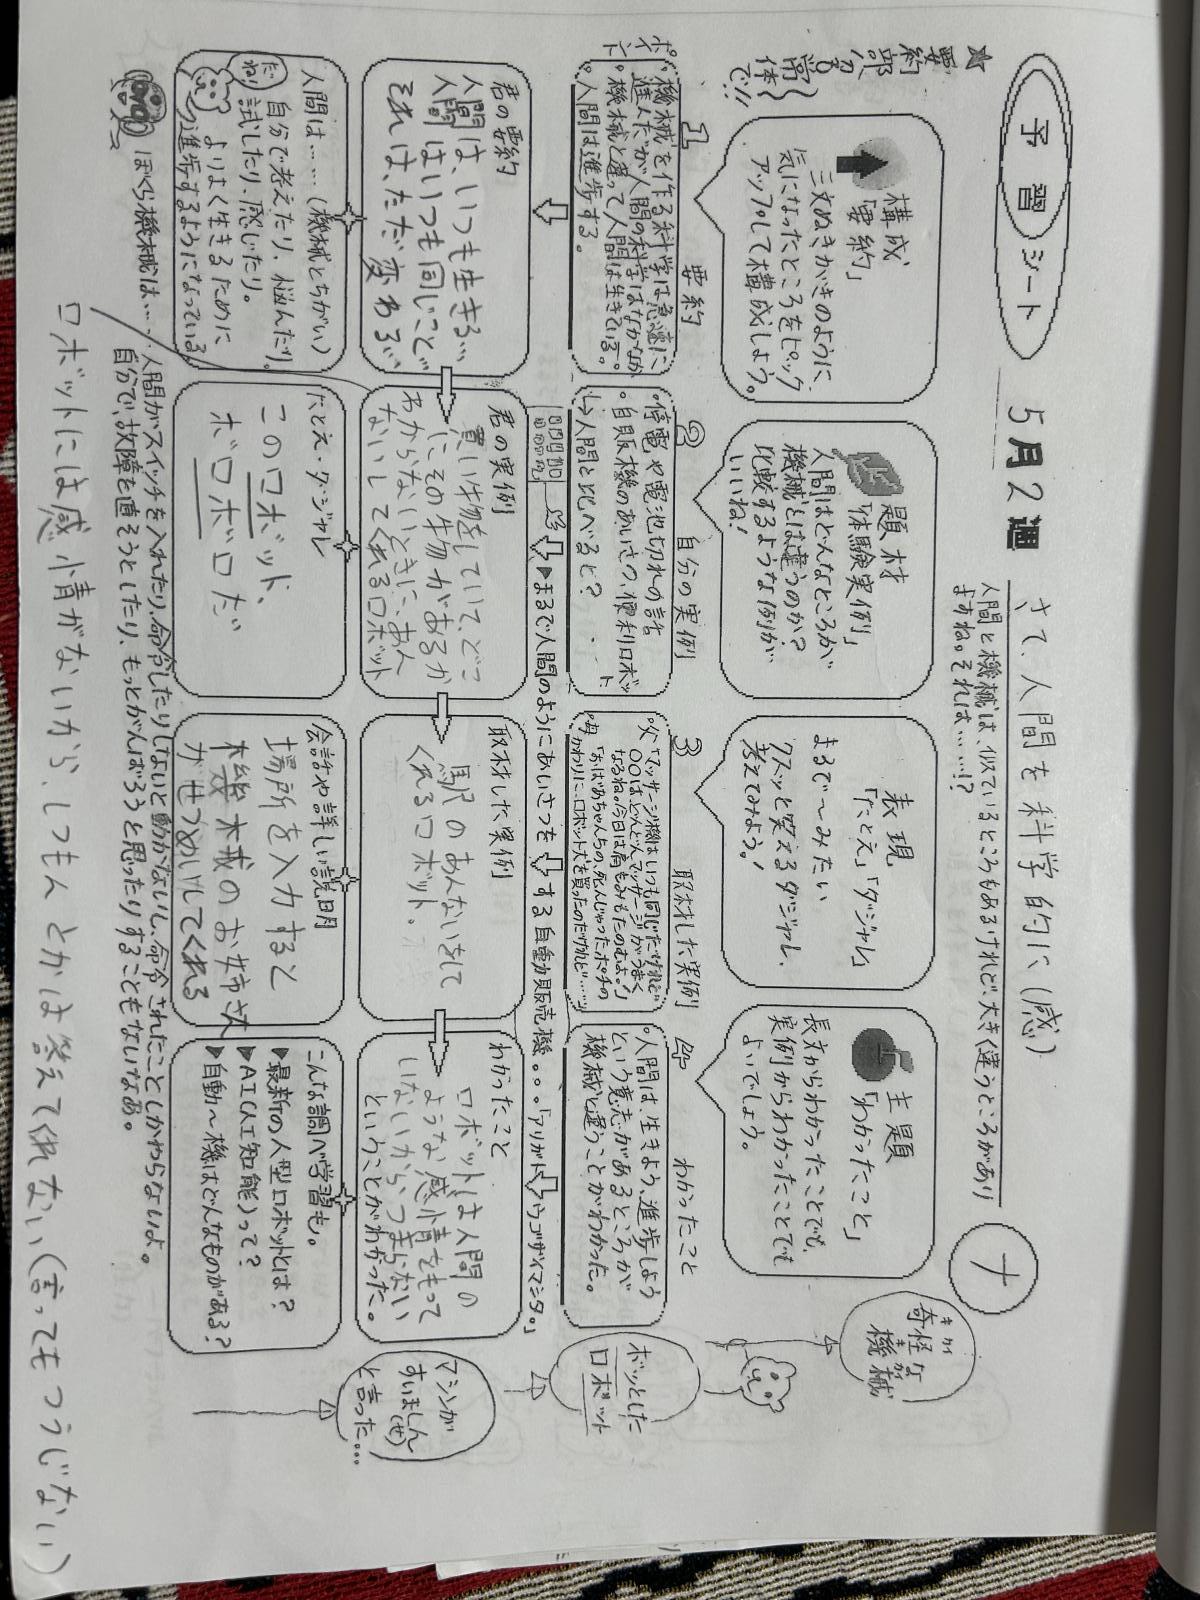 予習シート
5月2週
さて、人間を科学的に(感)
人間と機械は、似ているところもあるけれど、大きく違うところがあり
ますね。それは……!?
ナ
★要約部分は
常体で!!
構成
「要約」
三文ぬきがきのように
気になったところをピック
アップして構成しよう。
題材
「体験実例」
人間はどんなところが
機械とは違うのか?
比較するような例が
いいね!
表現
「たとえ」「ダジャレ」
まるで～みたい
クスッと笑えるダジャレ、
考えてみよう!
主題
「わかったこと」
長文からわかったことでも、
実例からわかったことでも
よいでしょう。
奇怪な
キカイ
機械
キカイ
1 要約
ポイント
・機械を作る科学は急速に
進んだが人間の科学はなかなか
・機械と違って人間は生きている。
・人間は進歩する。
2 自分の実例
・停電や電池切れの話
・自販機のあいさつ、便利ロボット
→人間と比べると?…
3 取材した実例
父「マッサージ機はいつも同じだけれど
〇〇はどんどんマッサージがうまく
なるね。今日は肩もみもたのむよ。」
母「おばあちゃんちの、死んじゃったポチの
かわりに、ロボット犬を買ったのだけれど……」
4 わかったこと
・人間は、生きよう、進歩しよう
という意志があるところが
機械と違うことがわかった。
ボッとした
ロボット
▶まるで人間のようにあいさつをする自動販売機。。。「アリガトウゴザイマシタ。」
君の要約
人間は、いつも生きる…
人間はいつも同じこと…
それは、ただ変わる…
君の実例
買い物をしていて、どこ
にその物があるか
わからないときに、あん
ないしてくれるロボット
取材した実例
駅のあんないをして
くれるロボット。
わかったこと
ロボットは人間の
ような感情をもって
いないから、つまらない
ということがわかった。
マシンが
すいましん
(せ)
と言った…
人間は……(機械とちがい)
自分で考えたり、悩んだり。
試したり、感じたり。
よりよく生きるために
進歩するようになっている
だね!
たとえ・ダジャレ
このロボット、
ボロボロだ
会話や詳しい説明
場所を入力すると
機械のお姉さん
がせつめいしてくれる
こんな調べ学習も。
▶最新の人型ロボットとは?
▶AI(人工知能)って?
▶自動～機はどんなものがある?
ぼくら機械は…・人間がスイッチを入れたり、命令したりしないと動かないし、命令されたことしかやらないよ。
自分で、故障を直そうとしたり、もっとがんばろうと思ったりすることもないなあ。
ロボットには感情がないから、しつもんとかは答えてくれない(言ってもつうじない)